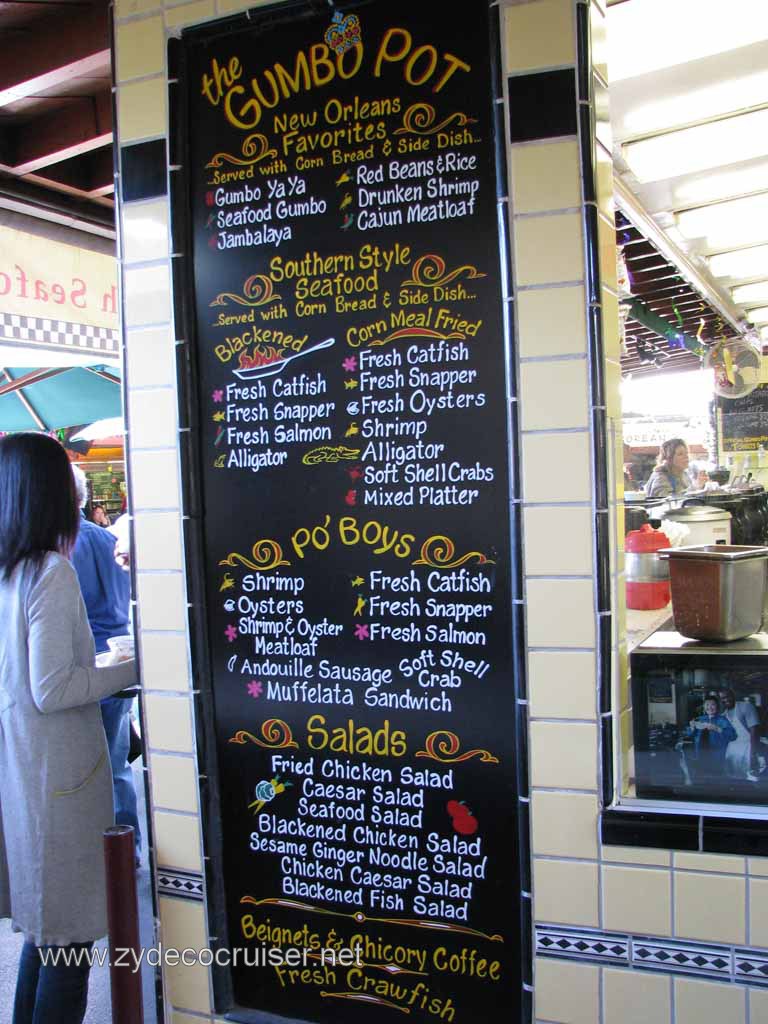 the GUMBO POT
New Orleans
Favorites
...Served with Corn Bread & Side Dish...
Gumbo Ya Ya
Seafood Gumbo
Jambalaya
Red Beans & Rice
Drunken Shrimp
Cajun Meatloaf
Southern Style
Seafood
...Served with Corn Bread & Side Dish...
Blackened
Fresh Catfish
Fresh Snapper
Fresh Salmon
Alligator
Corn Meal Fried
Fresh Catfish
Fresh Snapper
Fresh Oysters
Shrimp
Alligator
Soft Shell Crabs
Mixed Platter
Po' Boys
Shrimp
Oysters
Shrimp & Oyster
Meatloaf
Fresh Catfish
Fresh Snapper
Fresh Salmon
Andouille Sausage
Soft Shell
Crab
Muffelata Sandwich
Salads
Fried Chicken Salad
Caesar Salad
Seafood Salad
Blackened Chicken Salad
Sesame Ginger Noodle Salad
Chicken Caesar Salad
Blackened Fish Salad
Beignets & Chicory Coffee
Fresh Crawfish
www.zydecocruiser.net
h Seafo
OREAN